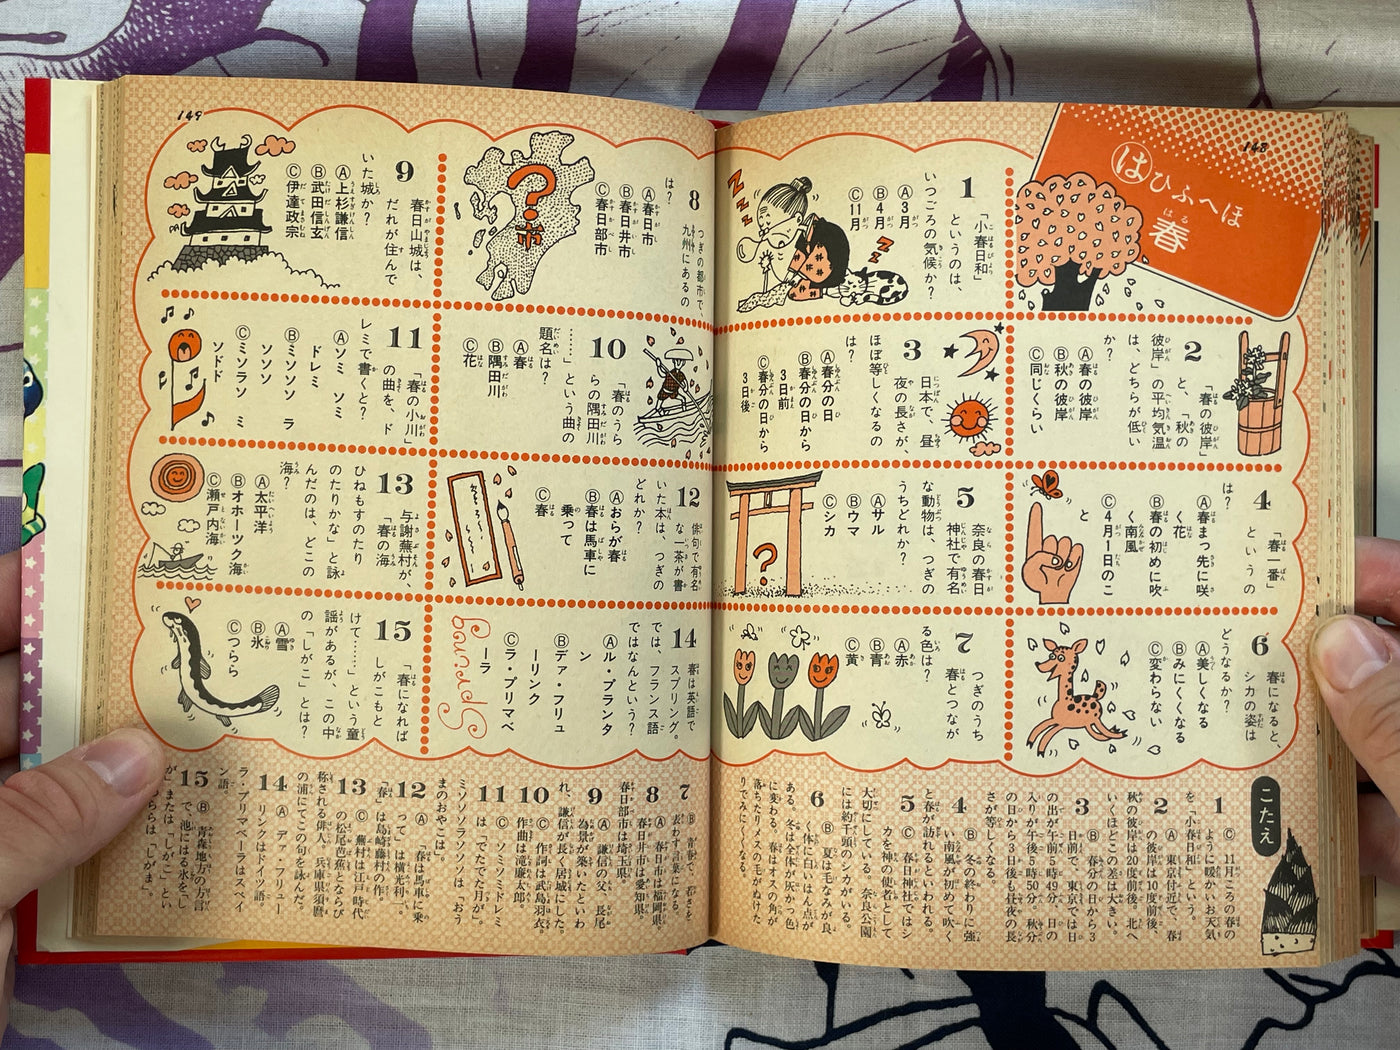 148
はひふへほ
春
1 「小春日和」
というのは、
いつごろの気候か?
Ⓐ3月
Ⓑ4月
Ⓒ11月
2 「春の彼岸」
と、「秋の
彼岸」の平均気温
は、どちらが低い
か?
Ⓐ春の彼岸
Ⓑ秋の彼岸
Ⓒ同じくらい
3 日本で、昼
夜の長さが、
ほぼ等しくなるの
は?
Ⓐ春分の日
Ⓑ春分の日から
3日前
Ⓒ春分の日から
3日後
4 「春一番」
というの
は?
Ⓐ春まっ先に咲
く花
Ⓑ春の初めに吹
く南風
Ⓒ4月1日のこ
と
5 奈良の春日
神社で有名
な動物は、つぎの
うちどれか?
Ⓐサル
Ⓑウマ
Ⓒシカ
6 春になると、
シカの姿は
どうなるか?
Ⓐ美しくなる
Ⓑみにくくなる
Ⓒ変わらない
7 つぎのうち
春とつなが
る色は?
Ⓐ赤
Ⓑ青
Ⓒ黄
こたえ
1 Ⓒ 11月ころの春の
ように暖かいお天気
を、「小春日和」という。
2 Ⓐ 東京付近で、春
の彼岸は10度前後、
秋の彼岸は20度前後。北へ
いくほどこの差は大きい。
3 Ⓑ 春分の日から3
日前で、東京では日
の出が午前5時49分、日の
入りが午後5時50分。秋分
の日から3日後も昼夜の長
さが等しくなる。
4 Ⓑ 冬の終わりに強
い南風が初めて吹く
と春が訪れるといわれる。
5 Ⓒ 春日神社ではシ
カを神の使者として
大切にしている。奈良公園
には約千頭のシカがいる。
6 Ⓑ 夏は毛なみが良
く体に白いはん点が
ある。冬は全体が灰かっ色
に変わる。春はオスの角が
落ちたりメスの毛がぬけた
りでみにくくなる。
149
8 つぎの都市で、
九州にあるの
は?
Ⓐ春日市
Ⓑ春日井市
Ⓒ春日部市
?市
9 春日山城は、
だれが住んで
いた城か?
Ⓐ上杉謙信
Ⓑ武田信玄
Ⓒ伊達政宗
10 「春のうら
らの隅田川
……」という曲の
題名は?
Ⓐ春
Ⓑ隅田川
Ⓒ花
11 「春の小川」
の曲を、ド
レミで書くと?
Ⓐソミ ソミ
ドレミ
Ⓑミソソソ ラ
ソソソ
Ⓒミソラソ ミ
ソドド
12 俳句で有名
な一茶が書
いた本は、つぎの
どれか?
Ⓐおらが春
Ⓑ春は馬車に
乗って
Ⓒ春
13 与謝蕪村が、
「春の海
ひねもすのたり
のたりかな」と詠
んだのは、どこの
海?
Ⓐ太平洋
Ⓑオホーツク海
Ⓒ瀬戸内海
14 春は英語で
スプリング。
では、フランス語
ではなんという?
Ⓐル・プランタ
ン
Ⓑデァ・フリュ
ーリンク
Ⓒラ・プリマベ
ーラ
Spring
15 「春になれば
しがこもと
けて……」という童
謡があるが、この中
の「しがこ」とは?
Ⓐ雪
Ⓑ氷
Ⓒつらら
7 Ⓑ 青春で、若さを
表わす言葉になる。
8 Ⓐ 春日市は福岡県。
春日井市は愛知県。
春日部市は埼玉県。
9 Ⓐ 謙信の父、長尾
為景が築いたといわ
れ、謙信が長く居城にした。
10 Ⓒ 作詞は武島羽衣、
作曲は滝廉太郎。
11 Ⓒ ソミソミドレミ
は「でたでた月が」。
ミソソソラソソソは「おう
まのおやこは」。
12 Ⓐ 「春は馬車に乗
って」は横光利一。
「春」は島崎藤村の作。
13 Ⓒ 蕪村は江戸時代
の松尾芭蕉とならび
称される俳人。兵庫県須磨
の浦にてこの句を詠んだ。
14 Ⓐ デァ・フリュー
リンクはドイツ語、
ラ・プリマベーラはスペイ
ン語。
15 Ⓑ 青森地方の方言
で、池にはる氷を「し
が」または「しがこ」とい
つららは「しがま」。